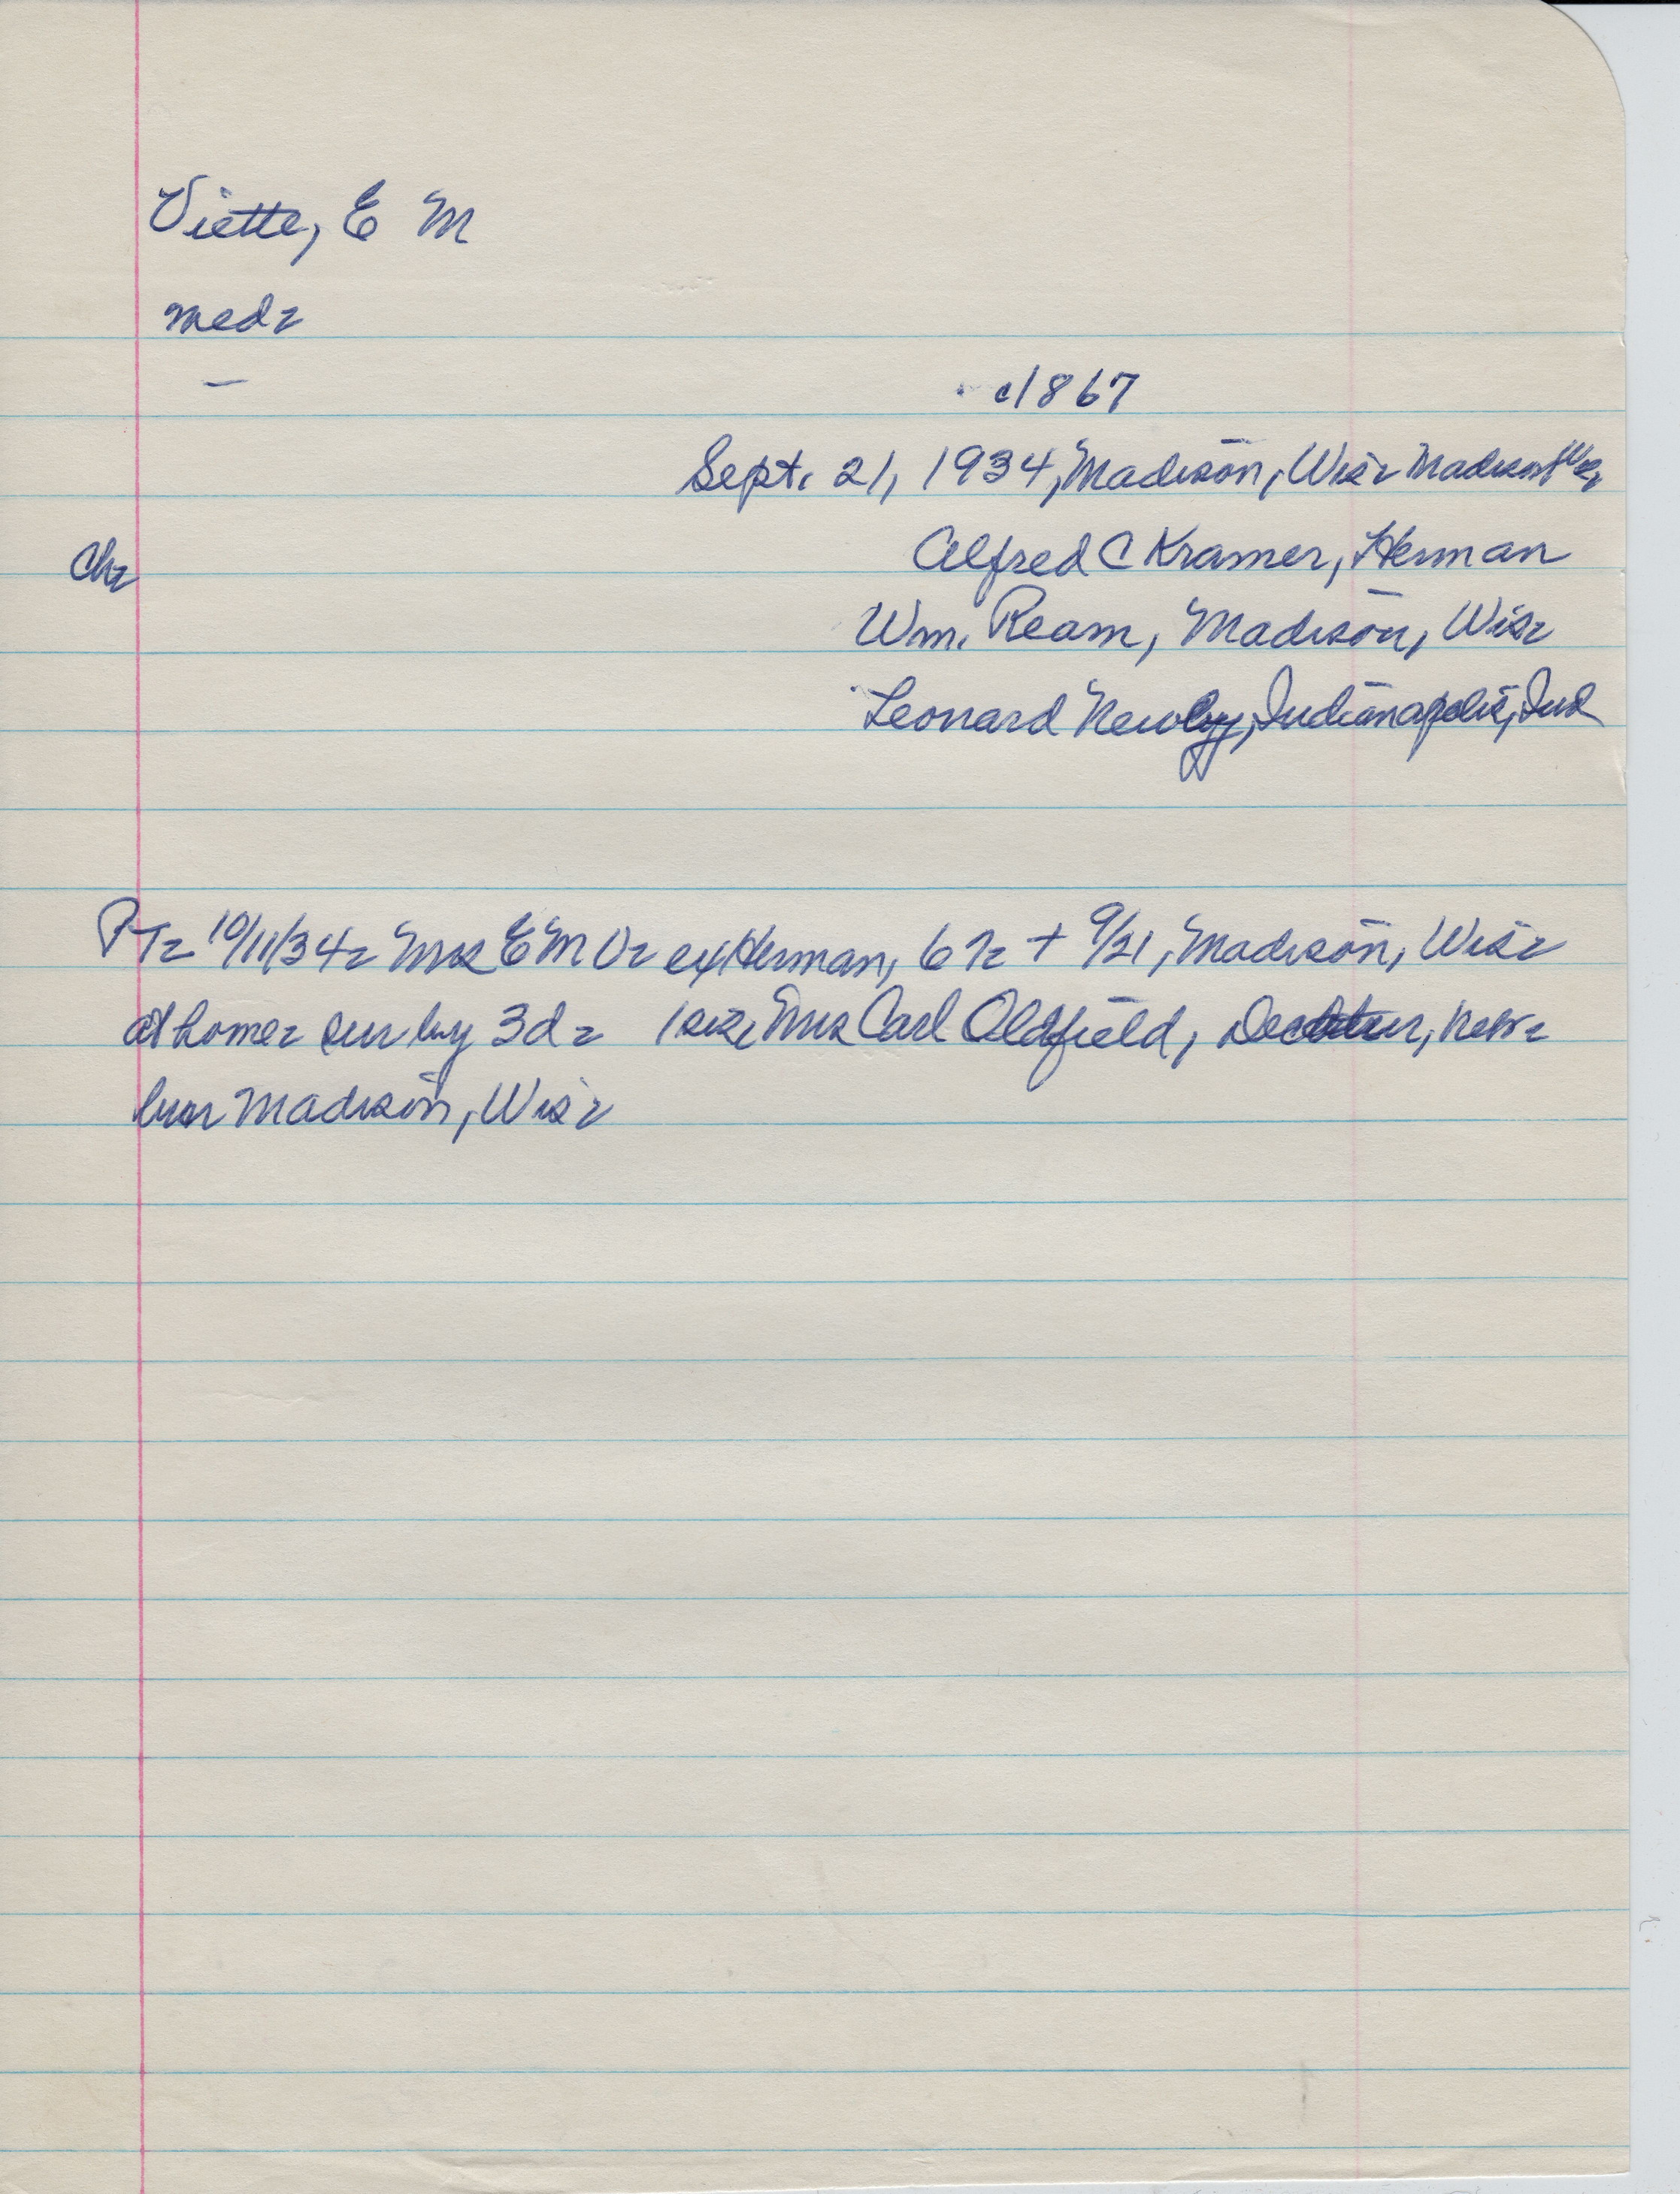 Viette, E M
med.
–
c1867
Sept. 21, 1934, Madison, Wis. Madison, Wis.
Ch. Alfred C Kramer, Herman
Wm. Ream, Madison, Wis.
Leonard Newby, Indianapolis, Ind
PT. 10/11/34. Mrs E M V. ex Herman, 67. + 9/21, Madison, Wis.
at home. sur by 3d. 1sis. Mrs Carl Oldfield, Nebr.
bur Madison, Wis.